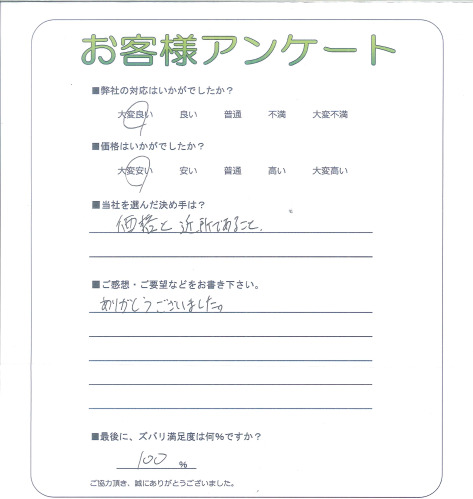 お客様アンケート
■弊社の対応はいかがでしたか？
大変良い 良い 普通 不満 大変不満
■価格はいかがでしたか？
大変安い 安い 普通 高い 大変高い
■当社を選んだ決め手は？
価格と近所であること.
■ご感想・ご要望などをお書き下さい。
ありがとうございました。
■最後に、ズバリ満足度は何%ですか？
100 %
ご協力頂き、誠にありがとうございました。